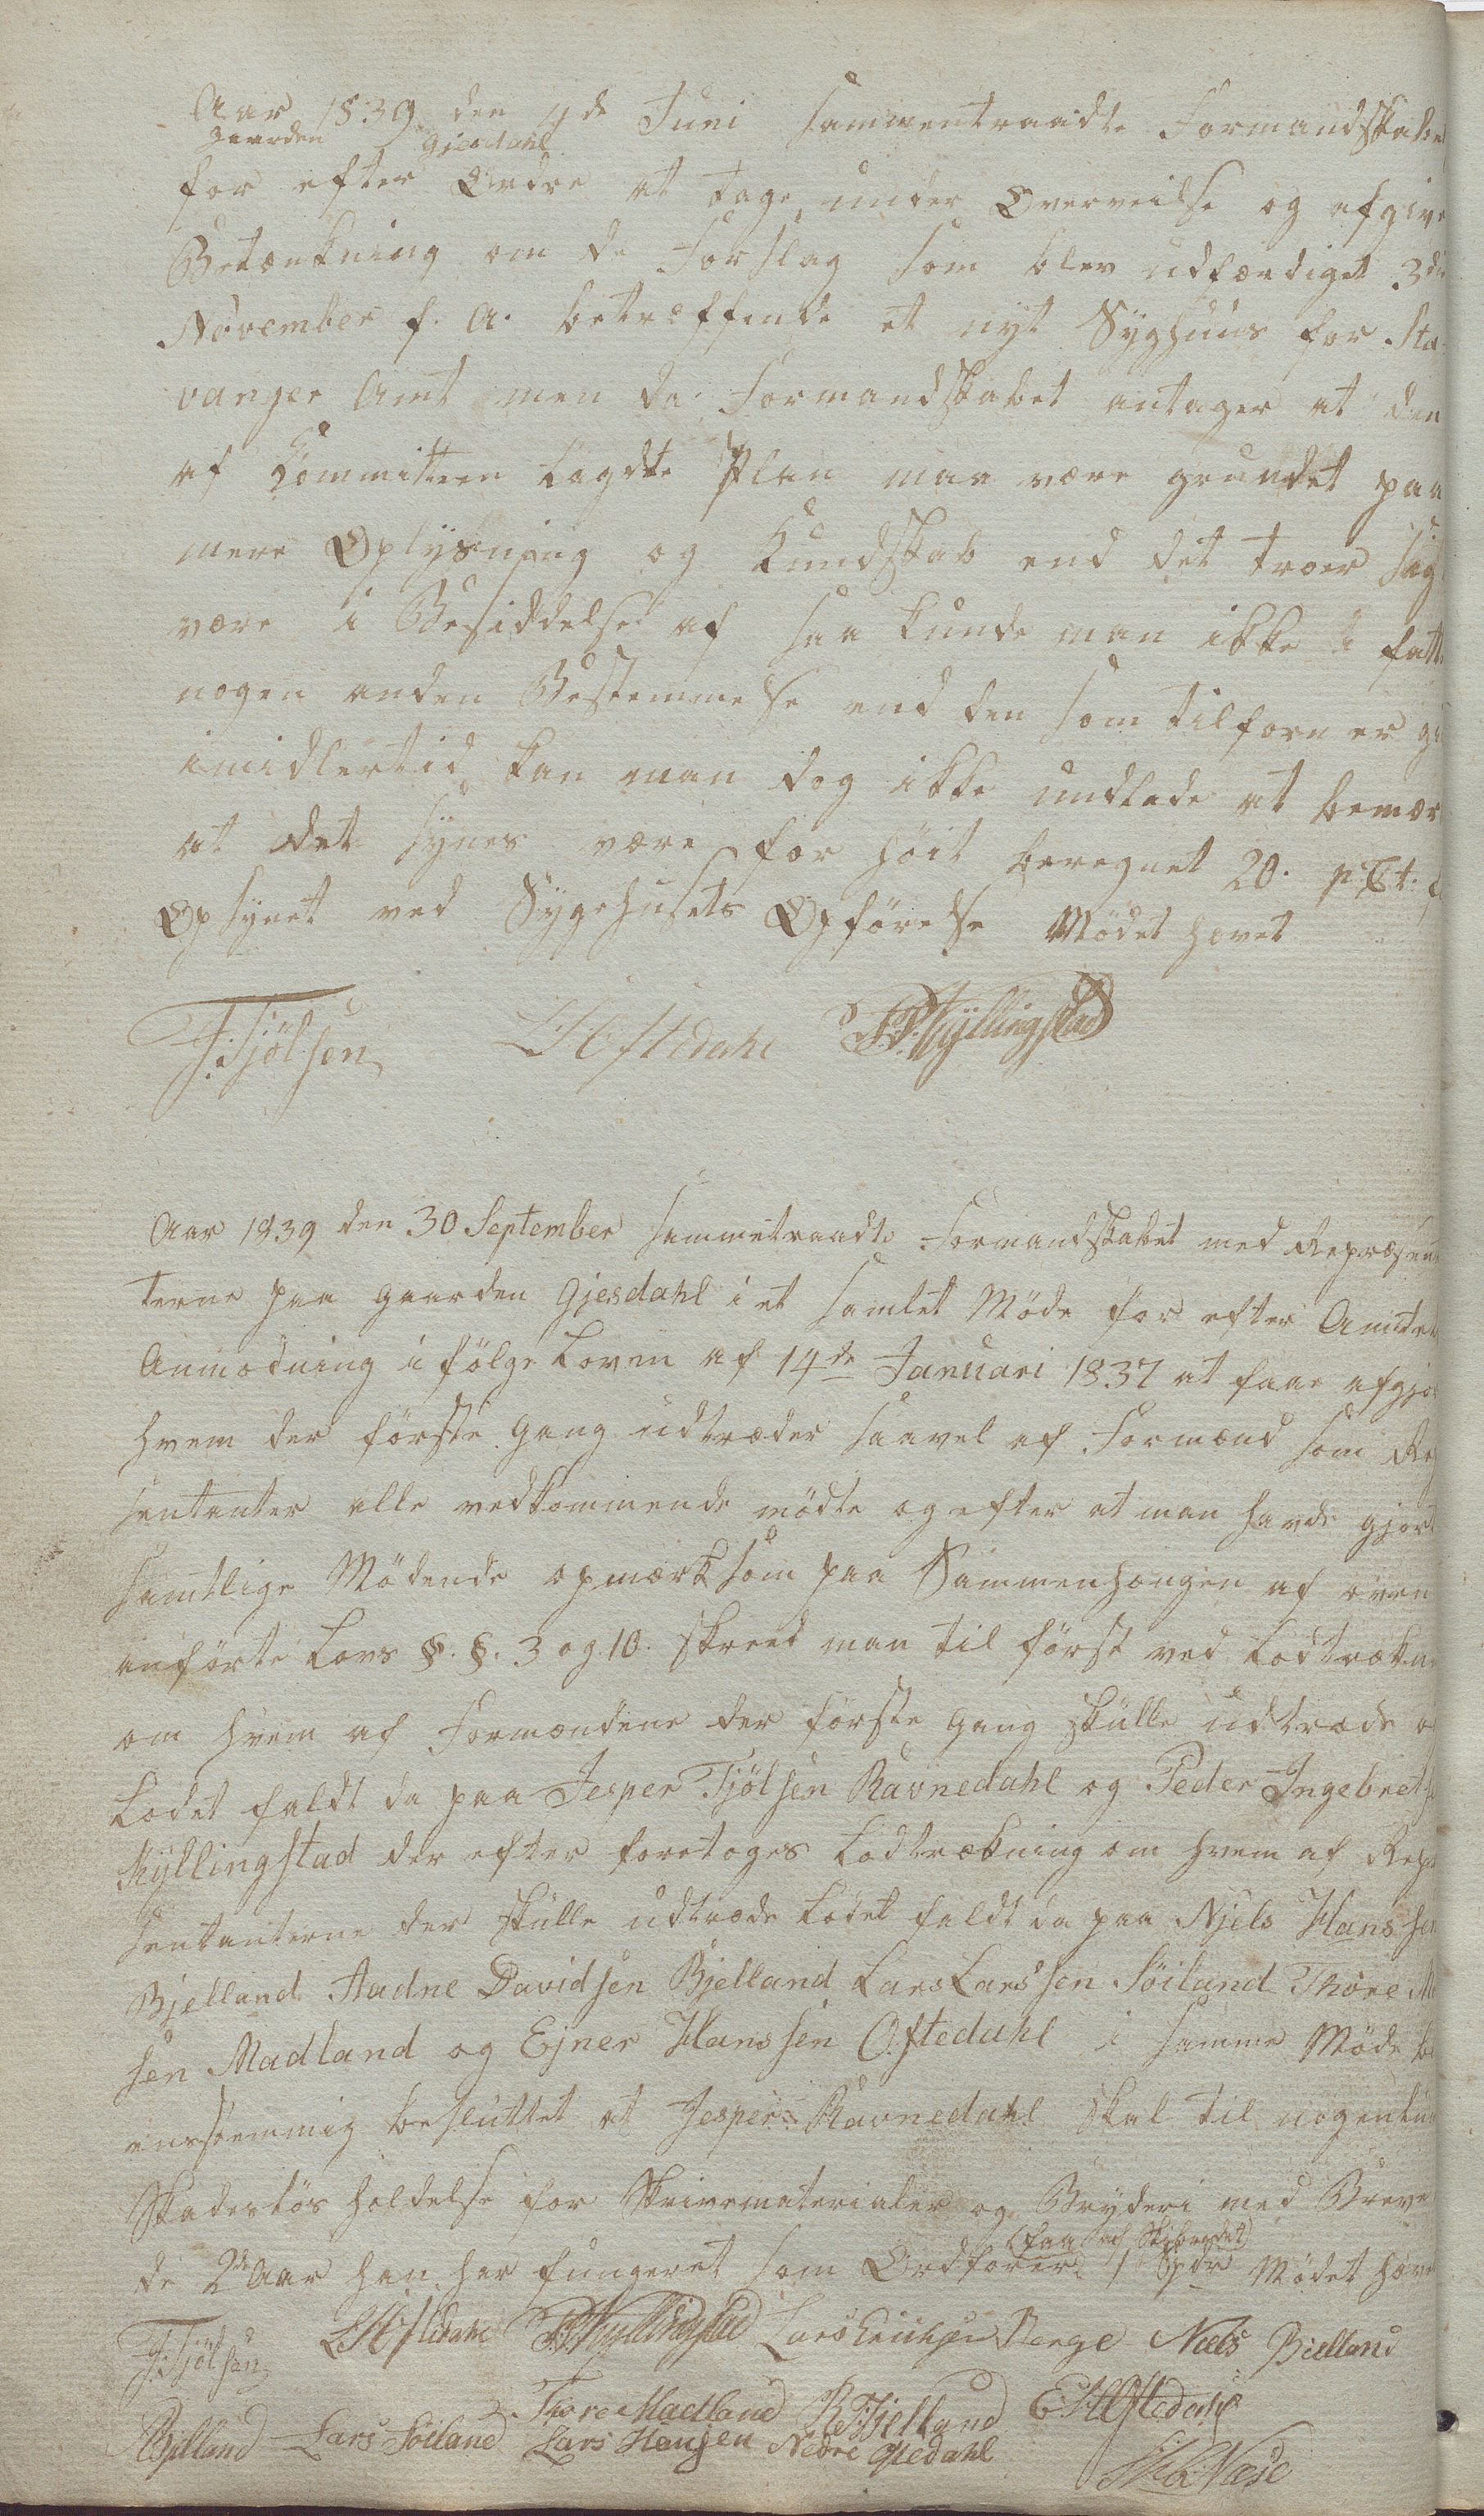 Aar 1839 den 4de Juni sammentraadte Formandskabet
gaarden Gjesdahl
for efter Ordre at tage under Overveielse og afgive
Betænkning om de Forslag som blev udfærdiget 3die
November f. A. betræffende et nyt Syghuus for Sta-
vanger Amt men da Formandskabet antager at den
af Committeen lagdte Plan maa være grundet paa
mere Oplysning og Kundskab end det troer sig
være i Besiddelse af saa kunde man ikke fatte
nogen anden Bestemmelse end den som tilforn er
imidlertid kan man dog ikke undlade at bemær
at det synes være for höit beregnet 20. pCt.
Opsynet ved Sygehusets Opförelse Mödet hævet
J. Tjölsen LHOftedahl P.I.Kyllingstad
Aar 1839 den 30 September sammetraadte Formandskabet med Repræsen
terne paa gaarden Gjesdahl i et samlet Möde for efter Amtets
Anmodning i fölge Loven af 14de Januari 1837 at faae afgjo
hvem der förste Gang udtræder saavel af Formænd som Rep
sentanter alle vedkommende mödte og efter at man havde gjort
samtlige Mödende opmærksom paa Sammenhængen af oven
anförte Lovs §. §. 3 og 10. skreed man til först ved Lodtrækn
om hvem af Formændene der förste Gang skulle udtræde o
Lodet faldt da paa Jesper Tjölsen Ravnedahl og Peder Ingebret
Kyllingstad der efter foretoges Lodtrækning om hvem af Rep
sentanterne der skulle udtræde Lodet faldt da paa Njels Hanssen
Bjelland Aadne Davidsen Bjelland Lars Larssen Söiland Thore
sen Madland og Ejner Hanssen Oftedahl i samme Möde
ensstemmig besluttet at Jesper Ravnedahl skal til nogenlun
Skadeslös holdelse for Skrivematerialer og Bryderi med Breve
(faa af Skibredet)
de 2de Aar han har fungeret som Ordförer 1 Spdr Mödet hæve
J. Tjölsen LHOftedahl P.I.Kyllingstad Lars Erichsen Berge Niels Bielland
Thore Madland Bjelland EHOftedahl
Bjelland Lars Söiland Lars Hansen Nedre Oftedahl Næse